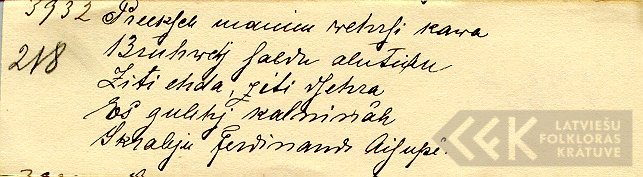 3932 Preeksch manim wehrsi kawa
218 Bruhwej saldu alutiņu
Ziti ehda, ziti dsehra
Es gulehj kalniņâh
Skrabju Ferdinands Aisupê.
LATVIEŠU
FOLKLORAS
KRĀTUVE